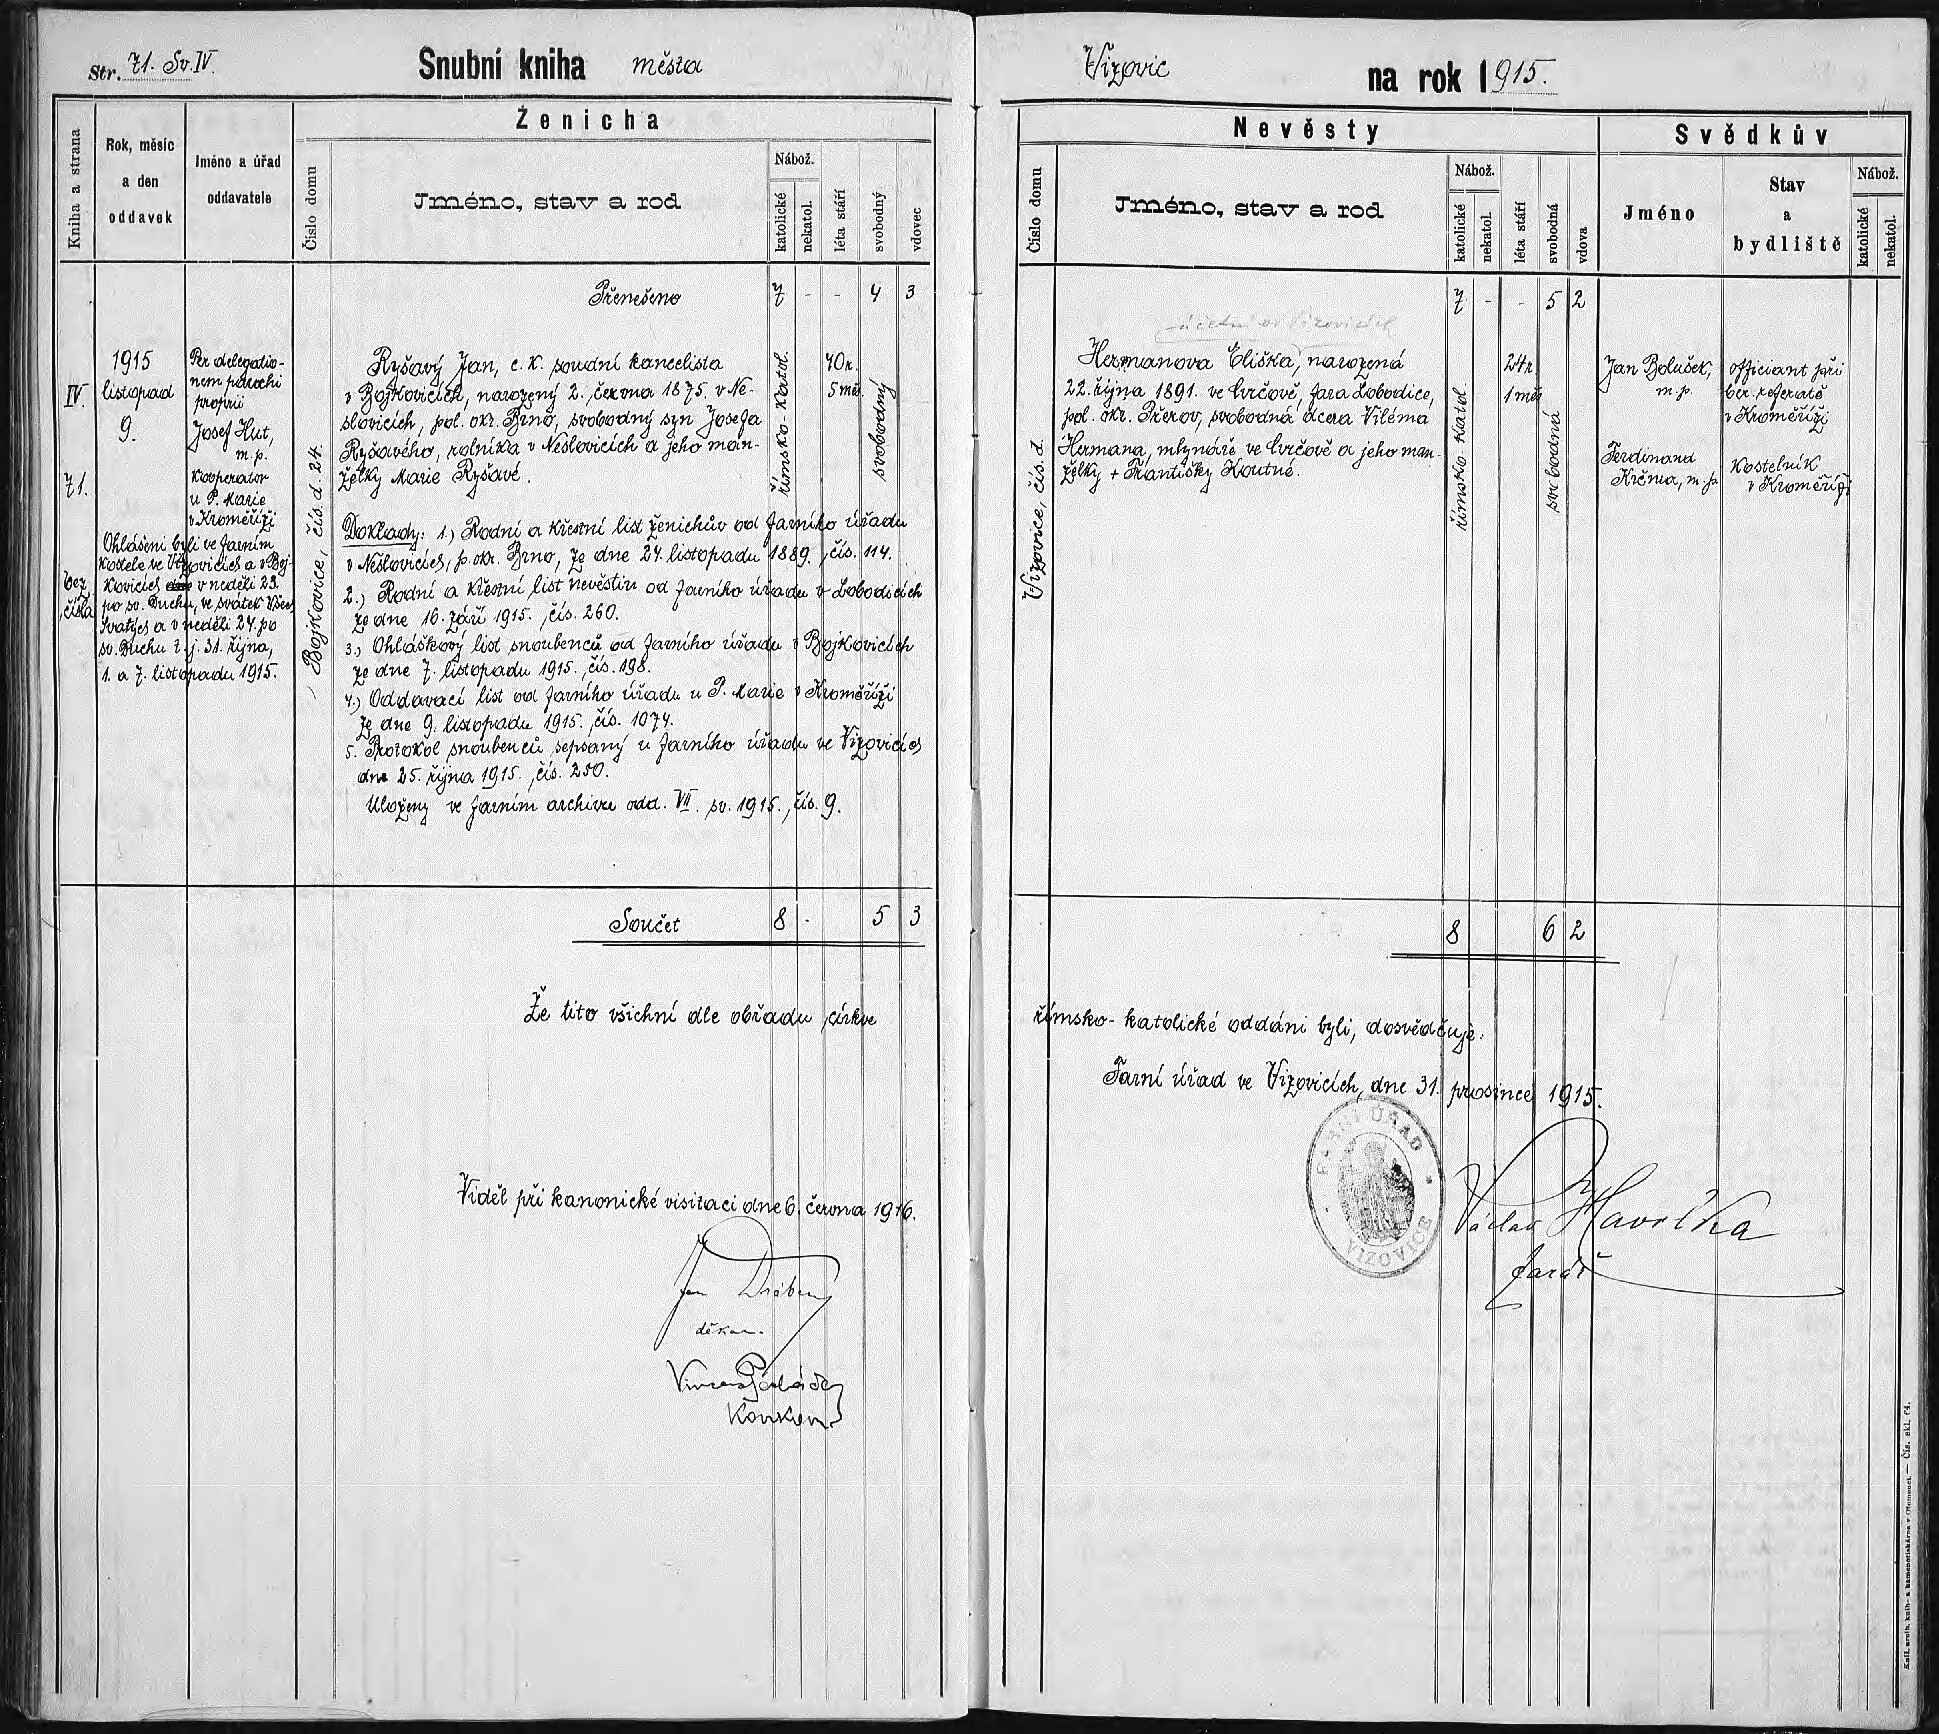 Str. 71. Sv. IV.
Snubní kniha města
Kniha a strana
Rok, měsíc
a den
oddavek
Jméno a úřad
oddavatele
Ženicha
Číslo domu
Jméno, stav a rod
Nábož.
katolické
nekatol.
léta stáří
svobodný
vdovec
Přenešeno 7 - - 4 3
IV.
71.
bez
čísla
1915
listopad
9.
Ohlášeni byli ve farním
kostele ve Vizovicích a v Boj-
kovicích v neděli 23.
po sv. Duchu, ve svátek Všech
Svatých a v neděli 24. po
sv. Duchu t. j. 31. října,
1. a 7. listopadu 1915.
Per delegatio-
nem parochi
proprii
Josef Hut,
m. p.
kooperator
u P. Marie
v Kroměříži
Bojkovice, čís. d. 24.
Ryšavý Jan, c. k. soudní kancelista
v Bojkovicích, narozený 2. června 1875. v Ne-
slovicích, pol. okr. Brno, svobodný syn Josefa
Ryšavého, rolníka v Neslovicích a jeho man-
želky Marie Ryšavé.
Doklady: 1.) Rodní a křestní list ženichův od farního úřadu
v Neslovicích, p. okr. Brno, ze dne 24. listopadu 1889., čís. 114.
2.) Rodní a křestní list nevěstin od farního úřadu v Lobodicích
ze dne 16. září 1915., čís. 260.
3.) Ohláškový list snoubenců od farního úřadu v Bojkovicích
ze dne 7. listopadu 1915., čís. 198.
4.) Oddavací list od farního úřadu u P. Marie v Kroměříži
ze dne 9. listopadu 1915., čís. 1074.
5. Protokol snoubenců sepsaný u farního úřadu ve Vizovicích
dne 25. října 1915., čís. 250.
Uloženy ve farním archivu odd. VII. sv. 1915., čís. 9.
římsko-katol.
40 r.
5 měs.
svobodný
Součet 8 - 5 3
Že tito všichni dle obřadu církve
Viděl při kanonické visitaci dne 6. června 1916.
Jan
děkan.
Vizovic
na rok 1915.
Nevěsty
Číslo domu
Jméno, stav a rod
Nábož.
katolické
nekatol.
léta stáří
svobodná
vdova
Svědkův
Jméno
Stav
a
bydliště
Nábož.
katolické
nekatol.
7 - - 5 2
účetní ve Vizovicích
Vizovice, čís. d.
Hermanova Eliška, narozená
22. října 1891. ve Cvrčově, fara Lobodice,
pol. okr. Přerov, svobodná dcera Viléma
Hermana, mlynáře ve Cvrčově a jeho man-
želky + Františky Koutné.
římsko-katol.
24 r.
1 měs.
svobodná
Jan Bolušek,
m. p.
officiant při
ber. referátě
v Kroměříži
Ferdinand
Krčma, m. p.
kostelník
v Kroměříži
8 6 2
římsko-katolické oddáni byli, dosvědčuje:
Farní úřad ve Vizovicích, dne 31. prosince 1915.
FARNÍ ÚŘAD
VIZOVICE
Václav Havelka
farář